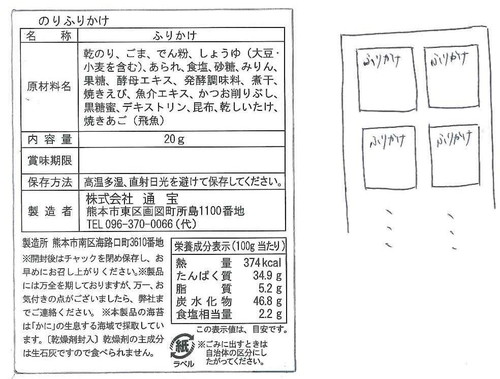 のりふりかけ
名 称 ふりかけ
原材料名 乾のり、ごま、でん粉、しょうゆ（大豆・
小麦を含む）、あられ、食塩、砂糖、みりん、
果糖、酵母エキス、発酵調味料、煮干、
焼きえび、魚介エキス、かつお削りぶし、
黒糖蜜、デキストリン、昆布、乾しいたけ、
焼きあご（飛魚）
内 容 量 20g
賞味期限
保存方法 高温多湿、直射日光を避けて保存してください。
製 造 者 株式会社 通 宝
熊本市東区画図町所島1100番地
TEL 096-370-0066（代）
製造所 熊本市南区海路口町3610番地
※開封後はチャックを閉め保存し、お
早めにお召し上がりください。※製品
には万全を期しておりますが、万一、お
気付きの点がございましたら、弊社ま
でご連絡ください。※本製品の海苔
は「かに」の生息する海域で採取してい
ます。〔乾燥剤封入〕乾燥剤の主成分
は生石灰ですので食べられません。
栄養成分表示（100g当たり）
熱 量 374kcal
たんぱく質 34.9g
脂 質 5.2g
炭水化物 46.8g
食塩相当量 2.2g
この表示値は、目安です。
紙
ラベル
※ごみに出すときは
自治体の区分にし
たがってください。
ふりかけ ふりかけ
ふりかけ ふりかけ